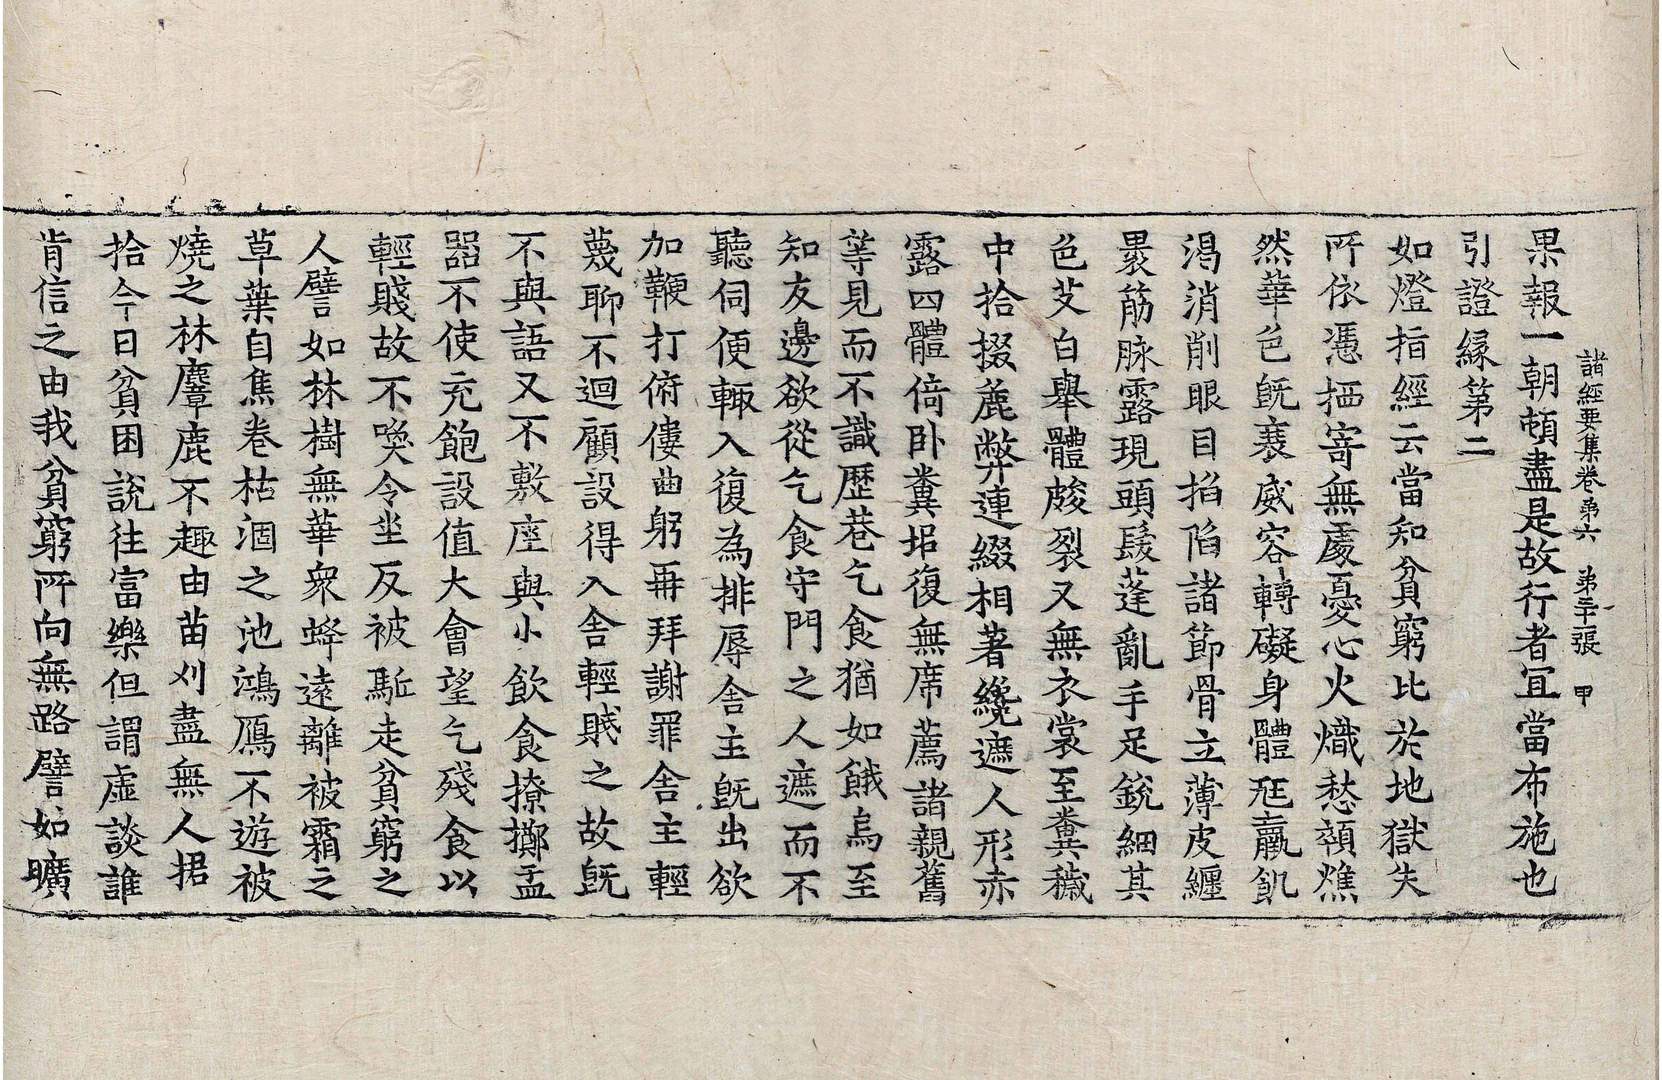 諸經要集卷弟六 弟二十二張 甲
果報一朝頓盡是故行者宜當布施也
引證縁第二
如燈指經云當知貧窮比於地獄失
所依憑栖寄無處憂心火熾愁顇燋
然華色旣衰威容轉礙身體尫羸飢
渴消削眼目掐陷諸節骨立薄皮纏
褁筋脉露現頭髮蓬亂手足銳細其
色艾白舉體皴裂又無衣裳至糞穢
中拾掇麁弊連綴相著纔遮人形赤
露四體倚卧糞垢復無席薦諸親舊
等見而不識歷巷乞食猶如餓烏至
知友邊欲從乞食守門之人遮而不
聽伺便輙入復為排辱舍主旣出欲
加鞭打俯僂曲躬再拜謝罪舍主輕
蔑聊不迴顧設得入舍輕賤之故旣
不與語又不敷座與小飲食撩擲盂
器不使充飽設值大會望乞殘食以
輕賤故不喚令坐反被駈走貧窮之
人譬如林樹無華衆蜂遠離被霜之
草葉自焦卷枯涸之池鴻鴈不遊被
燒之林麞鹿不趣由苗刈盡無人捃
拾今日貧困説往富樂但謂虛談誰
肯信之由我貧窮所向無路譬如曠